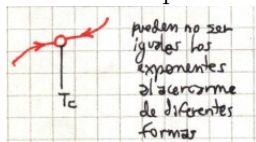 Tc
pueden no ser
iguales los
exponentes
al acercarme
de diferentes
formas